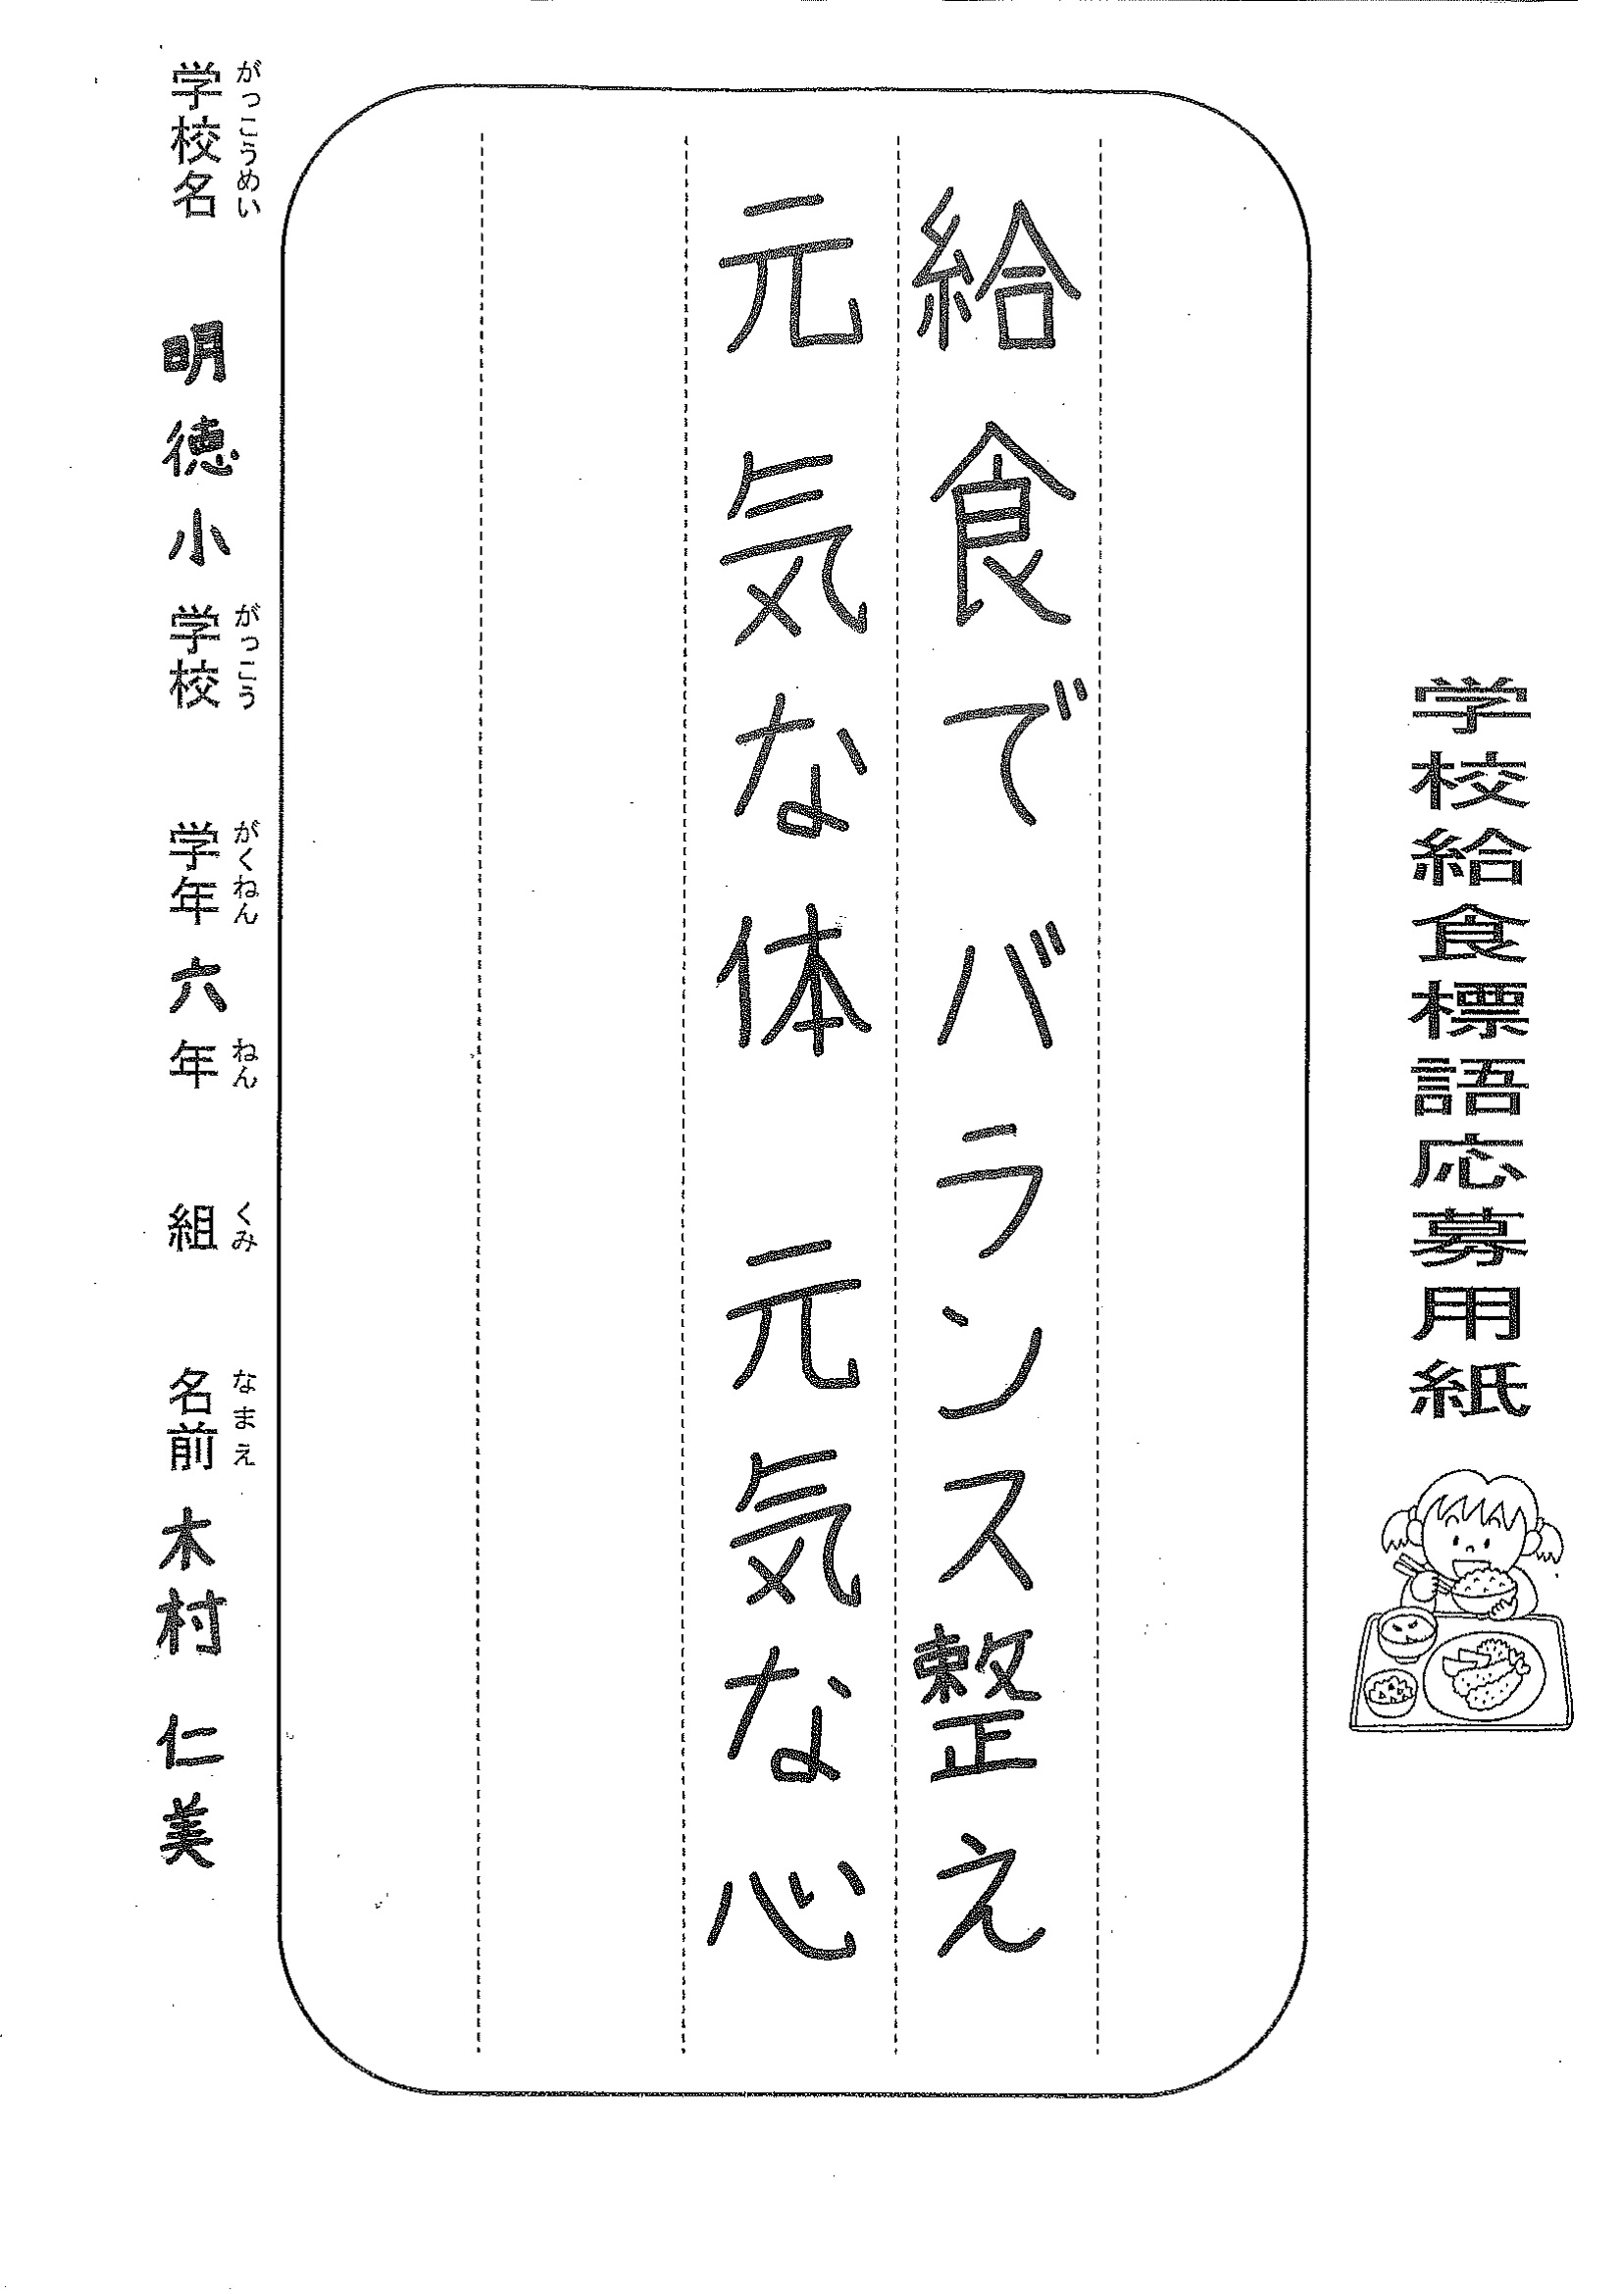 学校給食標語応募用紙
給食でバランス整え
元気な体　元気な心
学校名　明徳小学校　学年六年　組　名前　木村　仁美
がっこうめい　がっこう　がくねん　ねん　くみ　なまえ